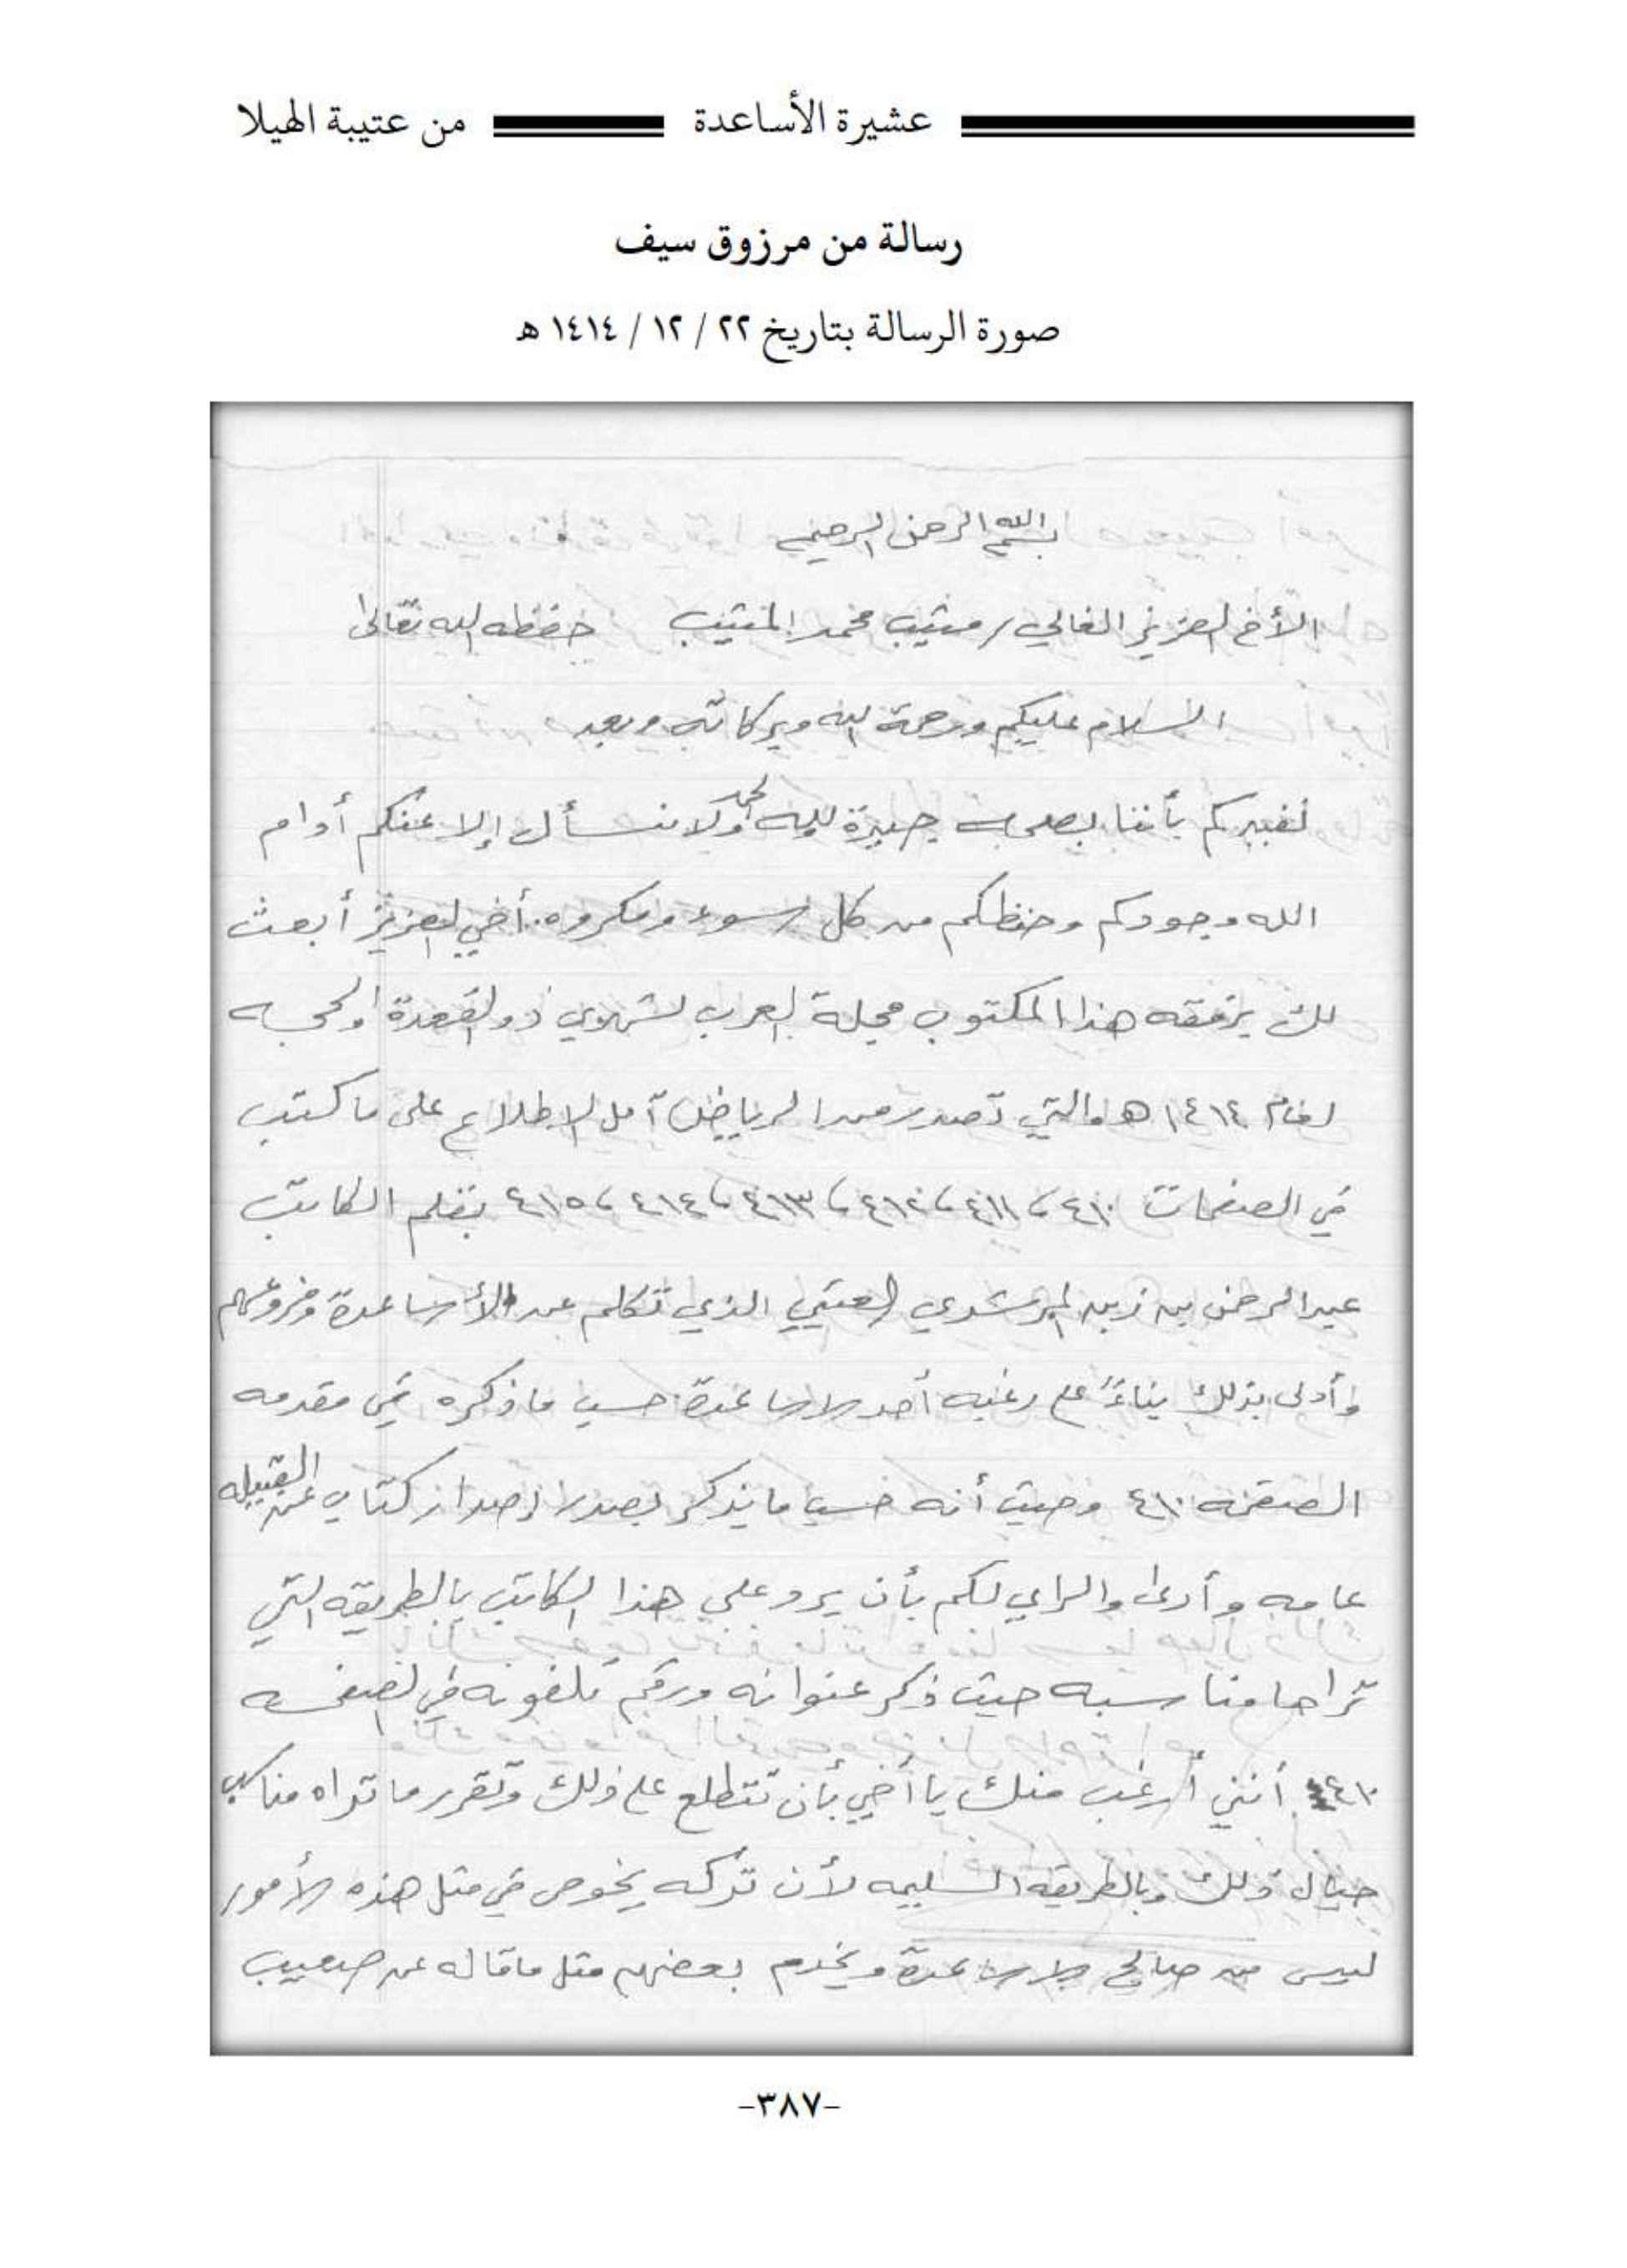 عشيرة الأساعدة من عتيبة الهيلا
رسالة من مرزوق سيف
صورة الرسالة بتاريخ ٢٢ / ١٢ / ١٤١٤ هـ
بسم الله الرحمن الرحيم
الأخ العزيز الغالي / مثيب محمد المثيب حفظه الله تعالى
السلام عليكم ورحمة الله وبركاته وبعد
نخبركم بأننا بصحه جيدة ولله الحمد ولا نسأل إلا عنكم أدام
الله وجودكم وحفظكم من كل سوء ومكروه. أخي العزيز أبعث
لك برفقه هذا المكتوب مجلة العرب لشهري ذو القعدة والحجه
لعام ١٤١٤ هـ والتي تصدر من الرياض آمل الإطلاع على ما كتب
في الصفحات ٤١٠، ٤١١، ٤١٢، ٤١٣، ٤١٤، ٤١٥ بقلم الكاتب
عبدالرحمن بن زبن المرشدي العتيبي الذي تكلم عن الأساعدة وفروعهم
وأدلى بذلك بناءً على رغبه أحد الاساعدة حسب ما ذكره في مقدمه
الصفحه ٤١٠ وحيث أنه حسب ما يذكر بصدد إصدار كتاب عن القبيله
عامه وأرى والراي لكم بأن يرد على هذا الكاتب بالطريقه التي
تراها مناسبه حيث ذكر عنوانه ورقم تلفونه في الصفحه
٤١٠ أنني أرغب منك يا أخي بأن تتطلع على ذلك وتقرر ما تراه مناسب
حيال ذلك وبالطريقه السليمه لأن تركه يخوض في مثل هذه الأمور
ليس من صالح الاساعدة ويخدم بعضهم مثل ماقاله عن صعيب
-٣٨٧-